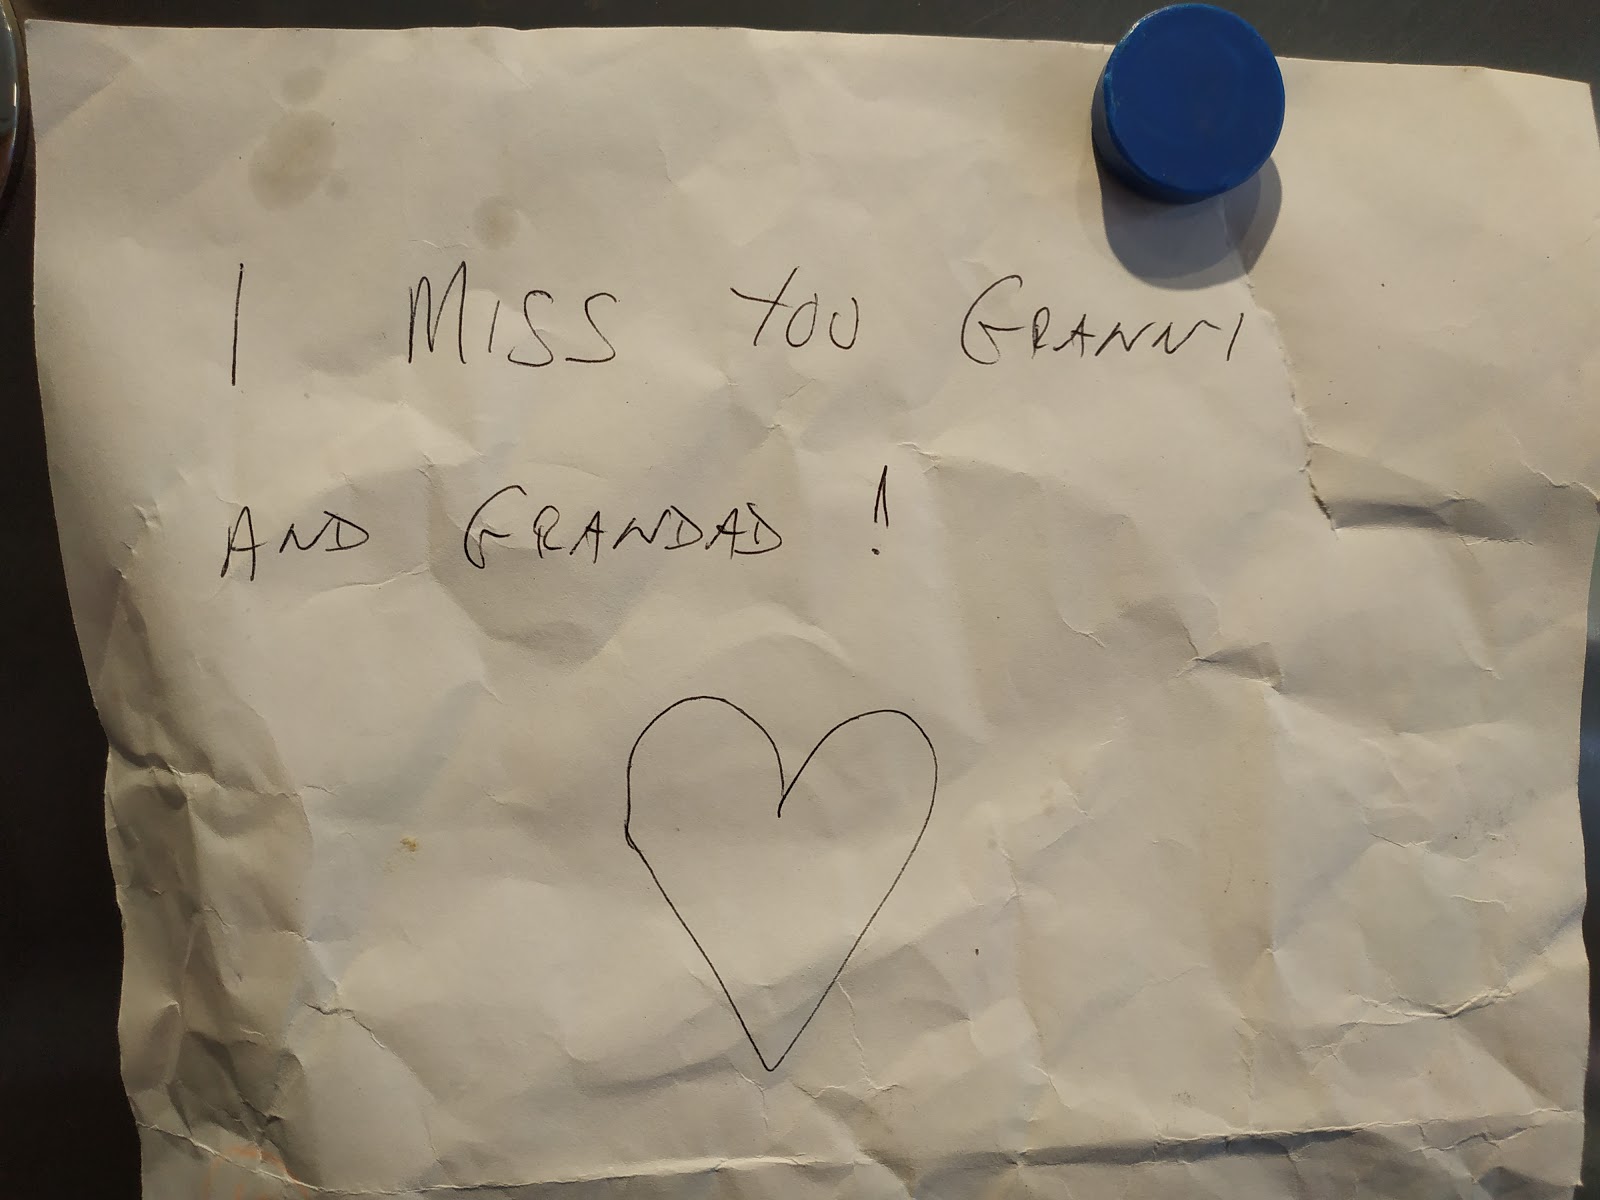 I MISS YOU GRANNI
AND GRANDAD !